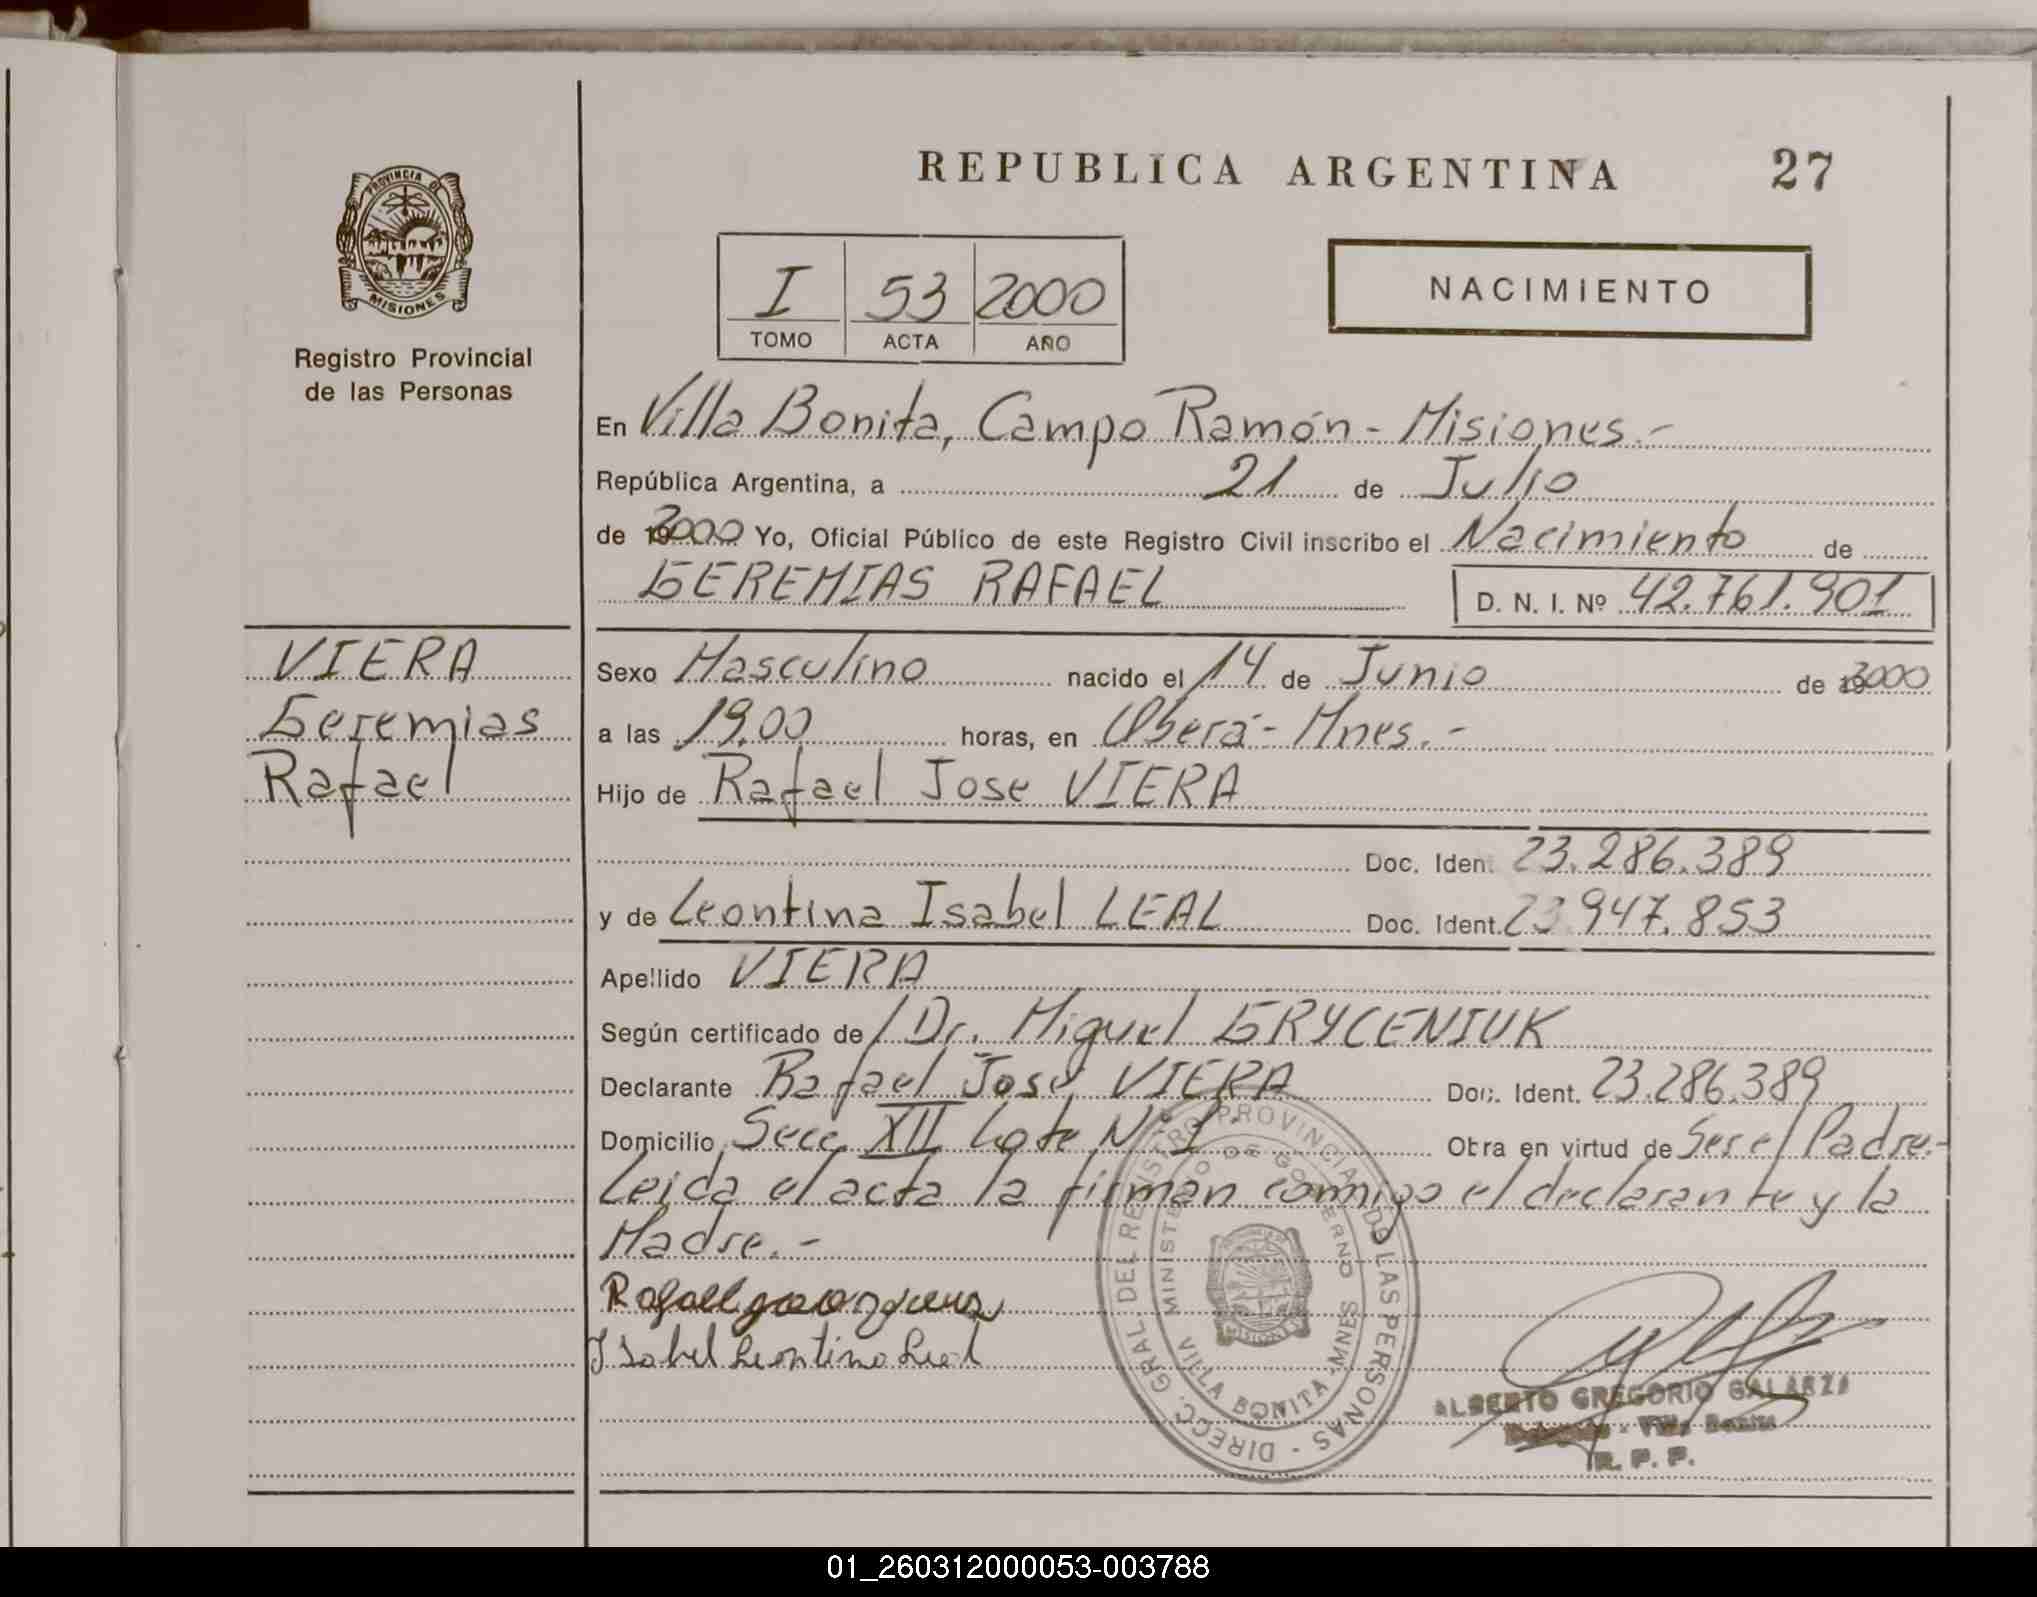 REPUBLICA ARGENTINA 27
PROVINCIA DE
MISIONES
Registro Provincial
de las Personas
I 53 2000
TOMO ACTA AÑO
NACIMIENTO
En Villa Bonita, Campo Ramón - Misiones.-
República Argentina, a 21 de Julio
de 2000 Yo, Oficial Público de este Registro Civil inscribo el Nacimiento de
GEREMIAS RAFAEL D. N. I. Nº 42.761.901
VIERA
Geremias
Rafael
Sexo Masculino nacido el 14 de Junio de 2000
a las 19,00 horas, en Oberá - Mnes.-
Hijo de Rafael Jose VIERA
Doc. Ident. 23.286.389
y de Leontina Isabel LEAL Doc. Ident. 23.947.853
Apellido VIERA
Según certificado de Dr. Miguel GRYCENIUK
Declarante Rafael Jose VIERA Doc. Ident. 23.286.389
Domicilio Secc. XII Lote Nº 1 Obra en virtud de Ser el Padre.-
Leida el acta la firman conmigo el declarante y la
Madre.-
Isabel Leontina Leal
DIRECC. GRAL. DEL REGISTRO PROVINCIAL DE LAS PERSONAS -
MINISTERIO DE GOBIERNO
VILLA BONITA, MNES
MISIONES
ALBERTO GREGORIO GALARZA
Delegado - Villa Bonita
R. P. P.
01_260312000053-003788